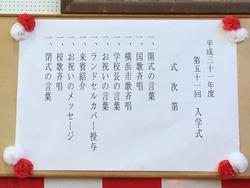 平成三十一年度
第五十一回 入学式
式次第
一、開式の言葉
一、国歌斉唱
一、横浜市歌斉唱
一、学校長の言葉
一、お祝いの言葉
一、ランドセルカバー授与
一、来賓紹介
一、お祝いのメッセージ
一、校歌斉唱
一、閉式の言葉